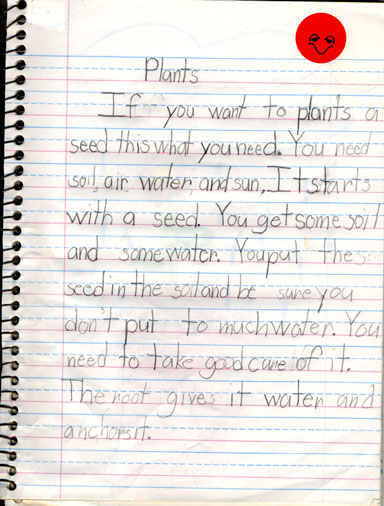 Plants
If you want to plants a
seed this what you need. You need
soil, air, water, and sun, It starts
with a seed. You get some soil
and some water. You put the
seed in the soil and be sure you
don't put to much water. You
need to take good care of it.
The root gives it water and
anchors it.